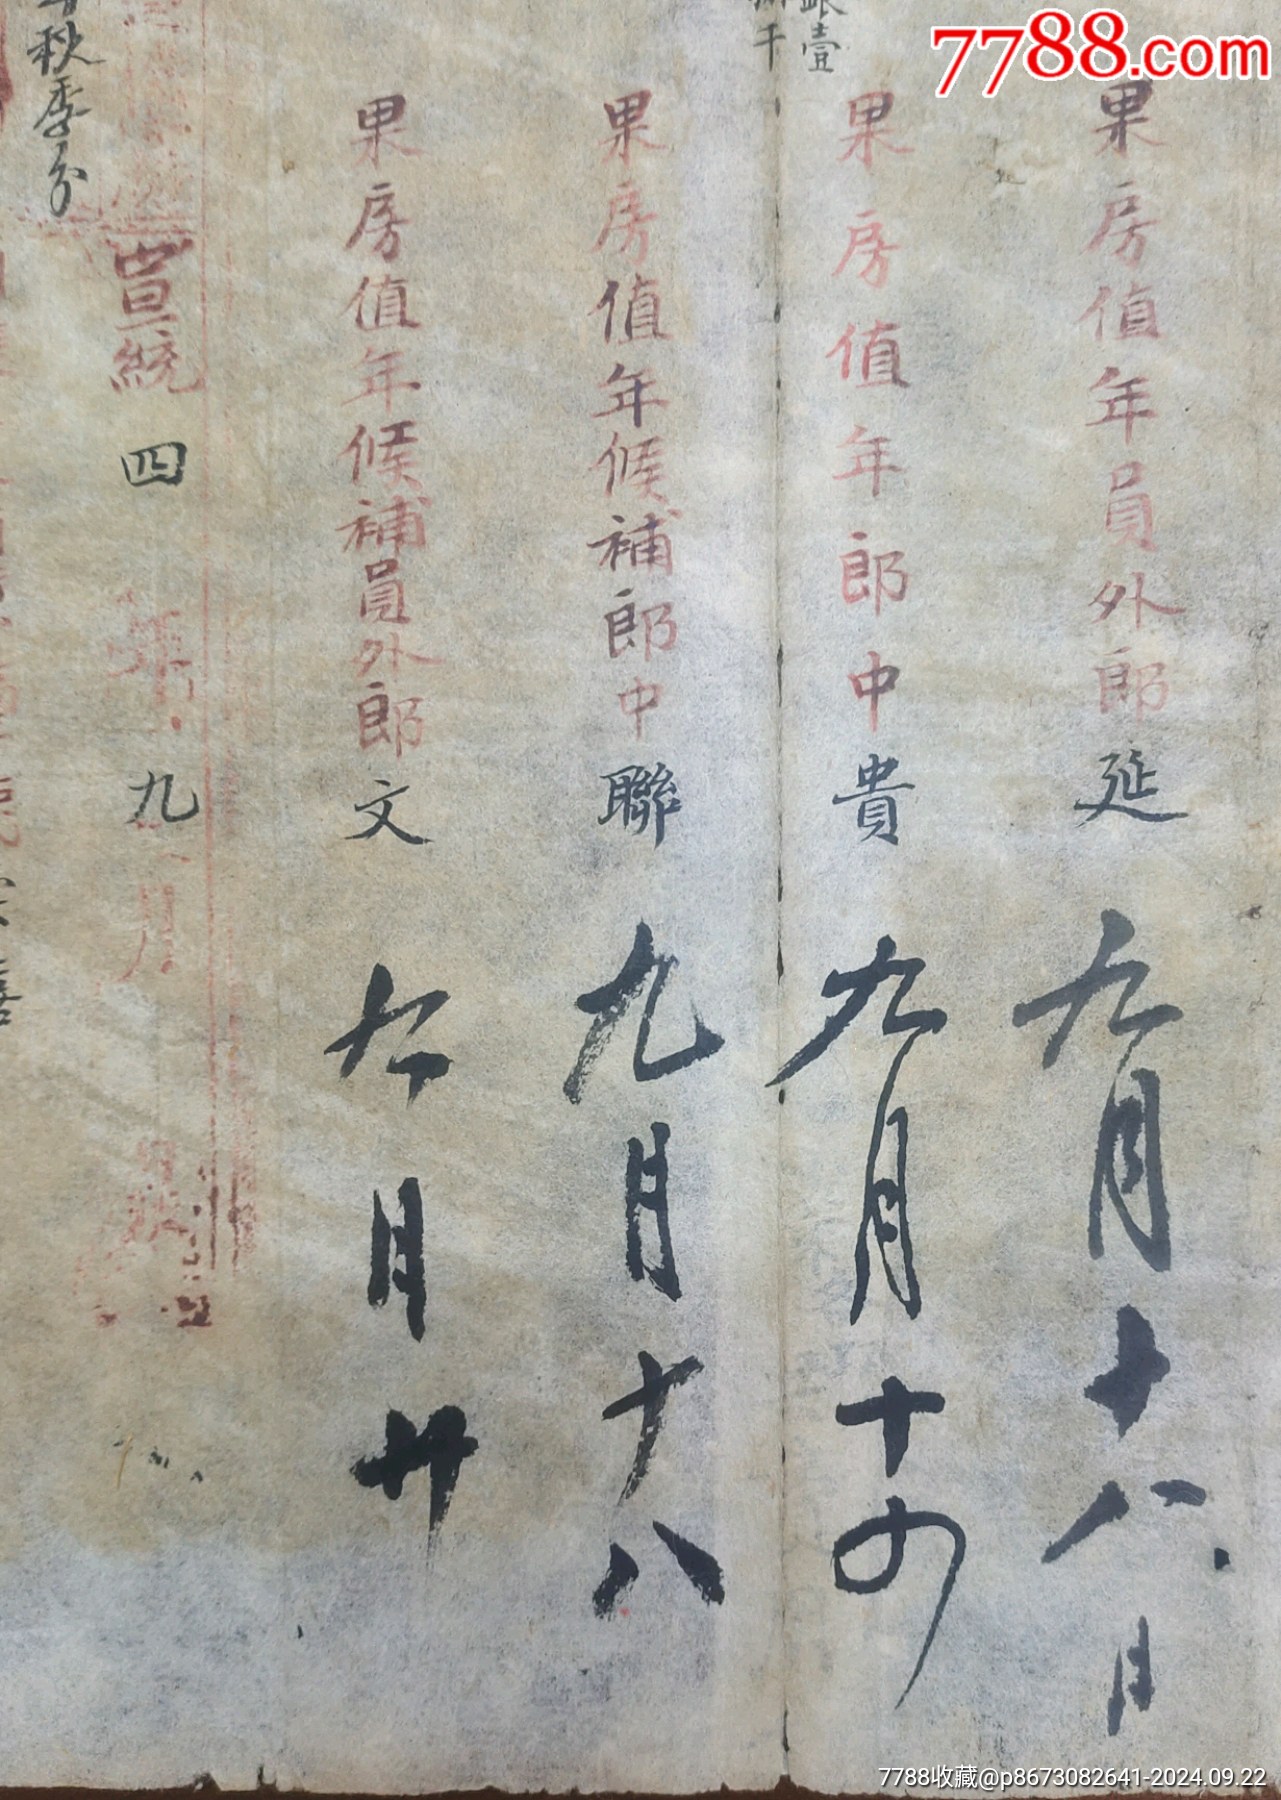 7788.com
銀壹
千
果房值年員外郎延 九月十八日
果房值年郎中貴 九月十四
果房值年候補郎中聯 九月十八
果房值年候補員外郎文 九月廿
宣統四年九月
秋季分
7788收藏@p8673082641-2024.09.22